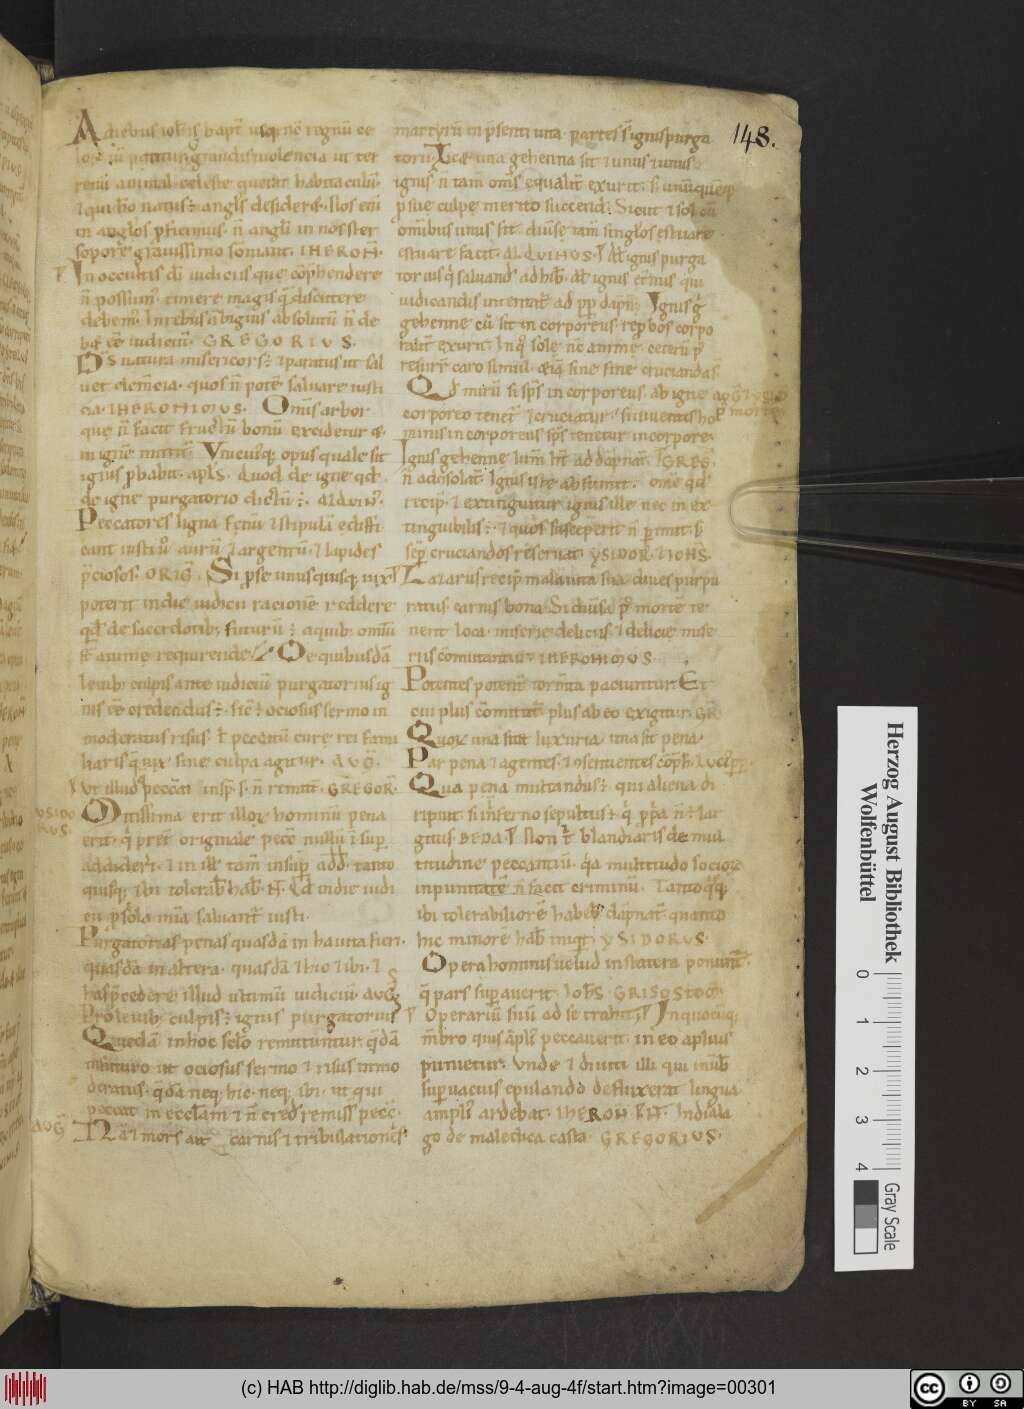 Adiebus ioh̅is bapt̅ usq; nc̅ regnu̅ ce
lor̅ ui̅ patitur grandis uiolencia ut ter
reni animal celeste querat habitaculu̅
⁊ qui ho̅ natus; angl̅s desideret. Nos eni̅
in anglos proficimus. n̅ angl̅i in nos ter
sopore grauissimo somiant. IHERON̅.
In occultis di̅ iudiciis que co̅p̅hendere
n̅ possum⁹. timere magis q̅ discutere
debem⁹. In rebus n̅ biguis absolutu̅ n̅ de
b& e̅e iudiciu̅. GREGORIVS.
Ds̅ natura misericors; ⁊ paratus ut sal
uet clem̅cia. quos n̅ pote̅ saluare iusti
cia. IHERONIMUS. Omis arbor
que n̅ facit fructu̅ bonu̅ excidetur &
in igne̅ mittit̅. Vnicuiq; opus quale sit
ignis p̅babit. apl̅s. Quod de igne qd̅
de igne purgatorio dictu̅; ALQUIN⁹.
Peccatores ligna fenu̅ ⁊ stipula̅ ediffi
cant iusti u̅ auru̅ ⁊ argentu̅. ⁊ lapides
p̅ciosos. ORIG̅. Si p̅ se unusquisq; uix
poterit in die iudicii racione̅ reddere
qd̅ de sacerdotib; futuru̅; a quib; om̅iu̅
st̅ anime requirende. De quibusda̅
leuib; culpis ante iudiciu̅ purgatorius ig
nis e̅e credendus; sic; ociosus sermo in
moderatus risus. l̅ peccatu̅ cure rei fami
liaris q̅ uix sine culpa agitur. AUG̅.
Ut illud peccat̅ in sp̅. s̅. n̅ remitt̅. GREGOR̅.
YSIDO
RUS.
Mitissima erit illor̅ hominu̅ pena
erit. q̅ pret̅ originale pecc̅ nullu̅ i̅ sup̅
addider̅t. ⁊ in ill̅ tam̅ insup̅ add̅. tanto
quisq; ibi tolerab̅ hab̅.
en p̅ sola mia̅ saluant̅ iusti.
Purgatorias penas quasda̅ in hac uita fieri.
quasda̅ in altera. quasda̅ ⁊ hic ⁊ ibi. ⁊
has p̅cedere illud ultimu̅ iudiciu̅. AUG̅
Pro leuib; culpis; ignis purgatorius
Queda̅ in hoc sc̅lo remittuntur. q̅da̅
in futuro ut ociosus sermo ⁊ risus inmo
deratus. q̅da̅ neq; hic. neq; ibi. ut qui
peccat in eccl̅am ⁊ n̅ cred̅ remiss̅ pecc̅.
AUG̅
carnis ⁊ tribulationes
148.
martyru̅ in p̅senti una partes s̅ ignis purga
torii. Licet una gehenna sit ⁊ unus ⁊ unus
ignis n̅ tam̅ om̅s equalit̅ exurit. s; unu̅quemq;
p̅ sue culpe merito succend̅. Sicut ⁊ sol cu̅
omibus unus sit. diuse̅ tam̅ singlos estuare
estuare facit. ALQUINUS. Al̅ ignis purga
torius q̅ saluand̅ adhib̅. al̅ ignis et̅nus qui
iudicandis intentat̅ ad p̅p̅ dapn̅. Ignis q̅
gehenne cu̅ sit incorporeus reprobos corpo
ralit̅ exurit. In q̅ sole nc̅ anime. ceteru̅ p̅
resurr̅ caro simul. atq; sine fine cruciandas.
Qd̅ miru̅ si sp̅s incorporeus. ab igne AUG̅. YSID.
corporeo tenet̅ ⁊ cruciatur. si uiuentis ho
minis incorporeus sp̅s tenetur in corpore.
Ignis gehenne lum̅ h̅t ad da̅pnat̅. GREG̅.
n̅ ad co̅solat̅. Ignis iste absumit. om̅e qd̅
recip̅. ⁊ extinguitur ignis ille nec in ex
tinguibilis; ⁊ quos susceperit n̅ p̅imit. s;
se̅p cruciandos reseruat. YSIDOR. IOHS.
Lazarus recip̅ mala uita sua. diues purpu
ratus. carnis bona. Si diu̅sa p̅ morte̅ te
nent loca. miserie deliciis. ⁊ delicie mise
riis co̅mutantur. IHERONIMUS.
Potentes potent̅ torm̅ta paciuntur. Et
cui plus co̅mittit̅ plus ab eo exigitur. GR̅
Quor̅ una fuit luxuria. una sit pena.
Par pena ⁊ agentes. ⁊ consentientes co̅p̅h. LUCI pp̅.
Qua pena multandus; qui aliena di
ripuit. si inferno sepultus; q̅ p̅p̅a n̅; lar
gitus. BEDA. Non t̅ blandiatis de mul
titudine peccantiu̅. q̅a multitudo socior̅
inpunitate̅ n̅ facit criminu̅. Tanto q̅sq;
ibi tolerabiliore̅ habeb̅ da̅pnat̅. quanto
hic minore̅ hab̅ iniqt̅. YSIDORUS.
Opera hominis uelud in statera ponunt̅.
q̅ pars sup̅auerit. Ioh̅s. GRISOSTOM̅.
Operariu̅ suu̅ ad se trahit. In quocu̅q;
me̅bro quis a̅pli⁹ peccauerit. in eo aplius
punietur. Vnde ⁊ diuiti illi qui in uib̅
sup̅uacuis epulando defluxerat lingua
ampli⁹ ardebat. IHERON. In diala
go de malechica casta. GREGORIUS.
Herzog August Bibliothek
Wolfenbüttel
0 1 2 3 4
Gray Scale
(c) HAB http://diglib.hab.de/mss/9-4-aug-4f/start.htm?image=00301
cc BY SA